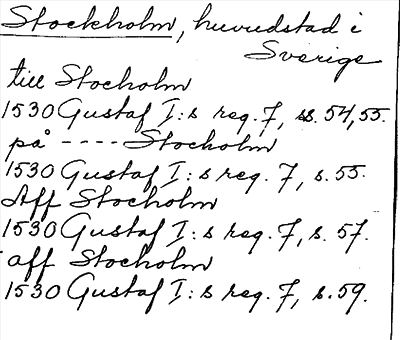 Stockholm, huvudstad i
Sverige
till Stocholm
1530 Gustaf I:s reg. 7, ss. 54, 55.
på ---- Stocholm
1530 Gustaf I:s reg. 7, s. 55.
Aff Stocholm
1530 Gustaf I:s reg. 7, s. 57.
aff Stocholm
1530 Gustaf I:s reg. 7, s. 59.